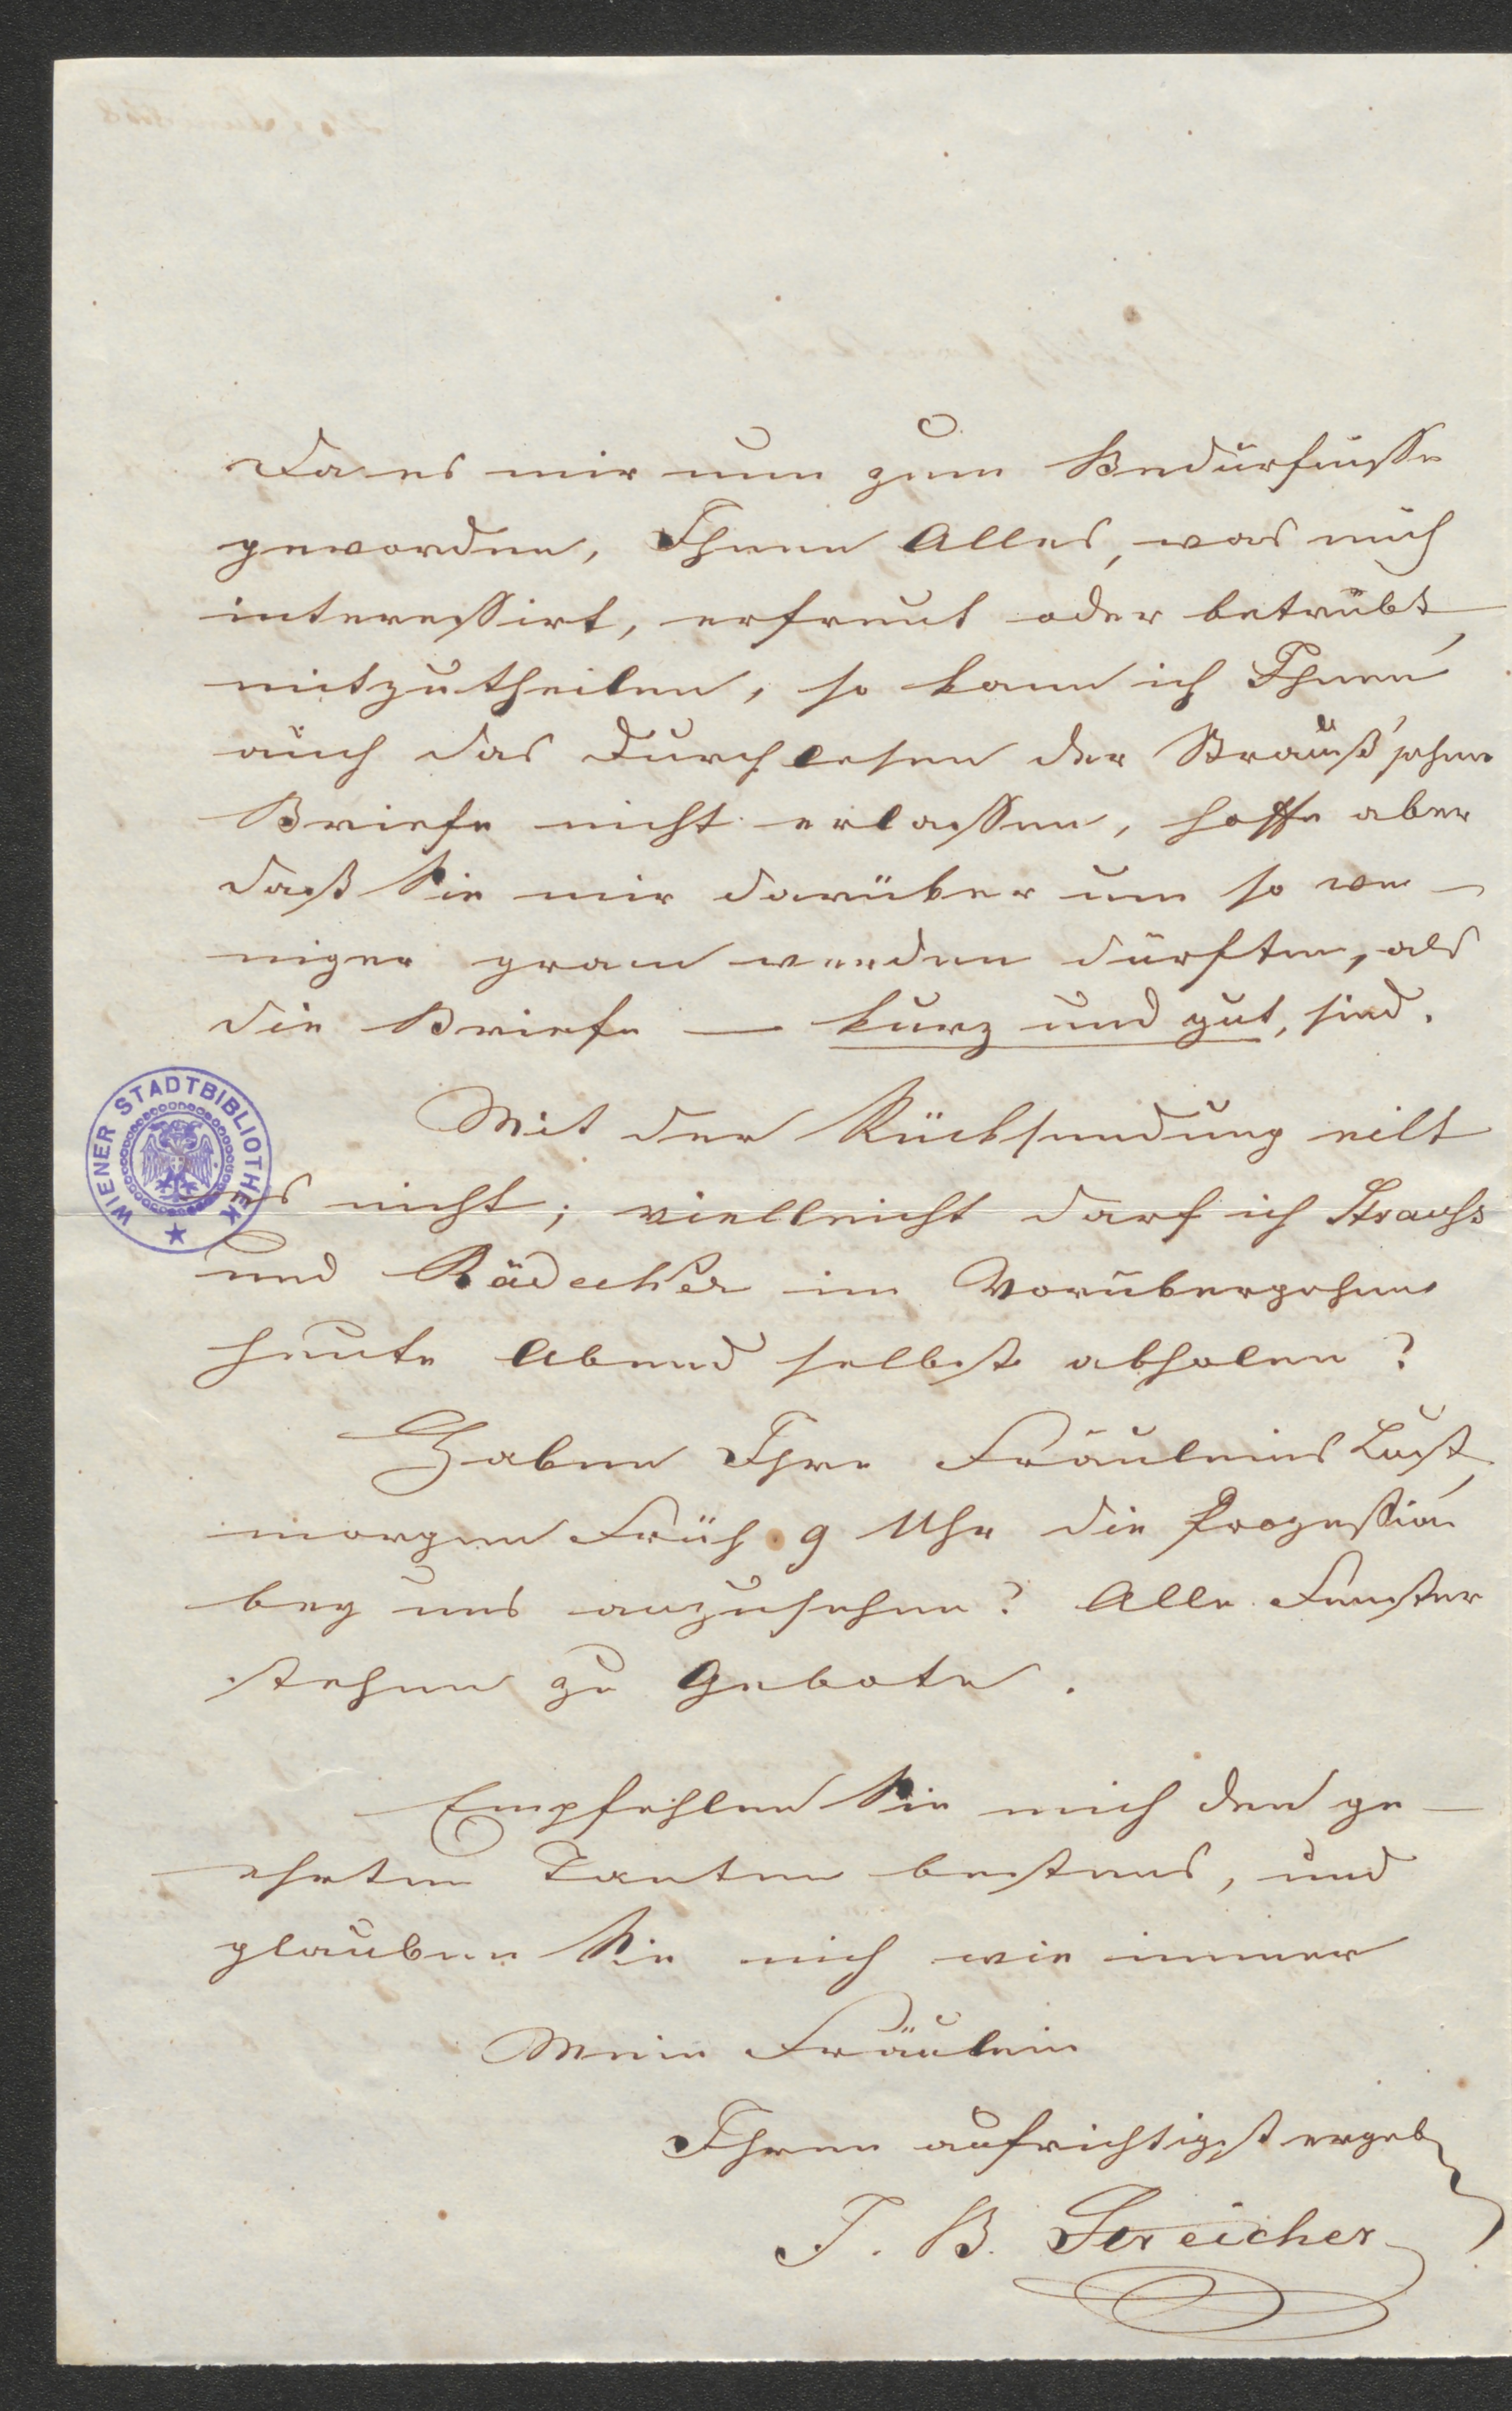 Da es mir nun zum Bedürfnisse
geworden, Ihnen Alles, was mich
interessirt, erfreut oder betrübt,
mitzutheilen, so kann ich Ihnen
auch das Durchlesen der Strauß'schen
Briefe nicht erlassen, hoffe aber
daß Sie mir darüber um so we-
niger gram werden dürften, als
die Briefe — kurz und gut, sind.
Mit der Rücksendung eilt
es nicht; vielleicht darf ich Strauss
und im Vorübergehen
heute Abend selbst abholen?
Haben Ihre Fräuleins Lust,
morgen Früh 9 Uhr die Prozession
bey uns anzusehen? Alle Fenster
stehen zu Gebote.
Empfehlen Sie mich den ge-
ehrten Tanten bestens, und
glauben Sie mich wie immer
Mein Fräulein
Ihren aufrichtigst ergeb
J. B. Streicher
WIENER STADTBIBLIOTHEK